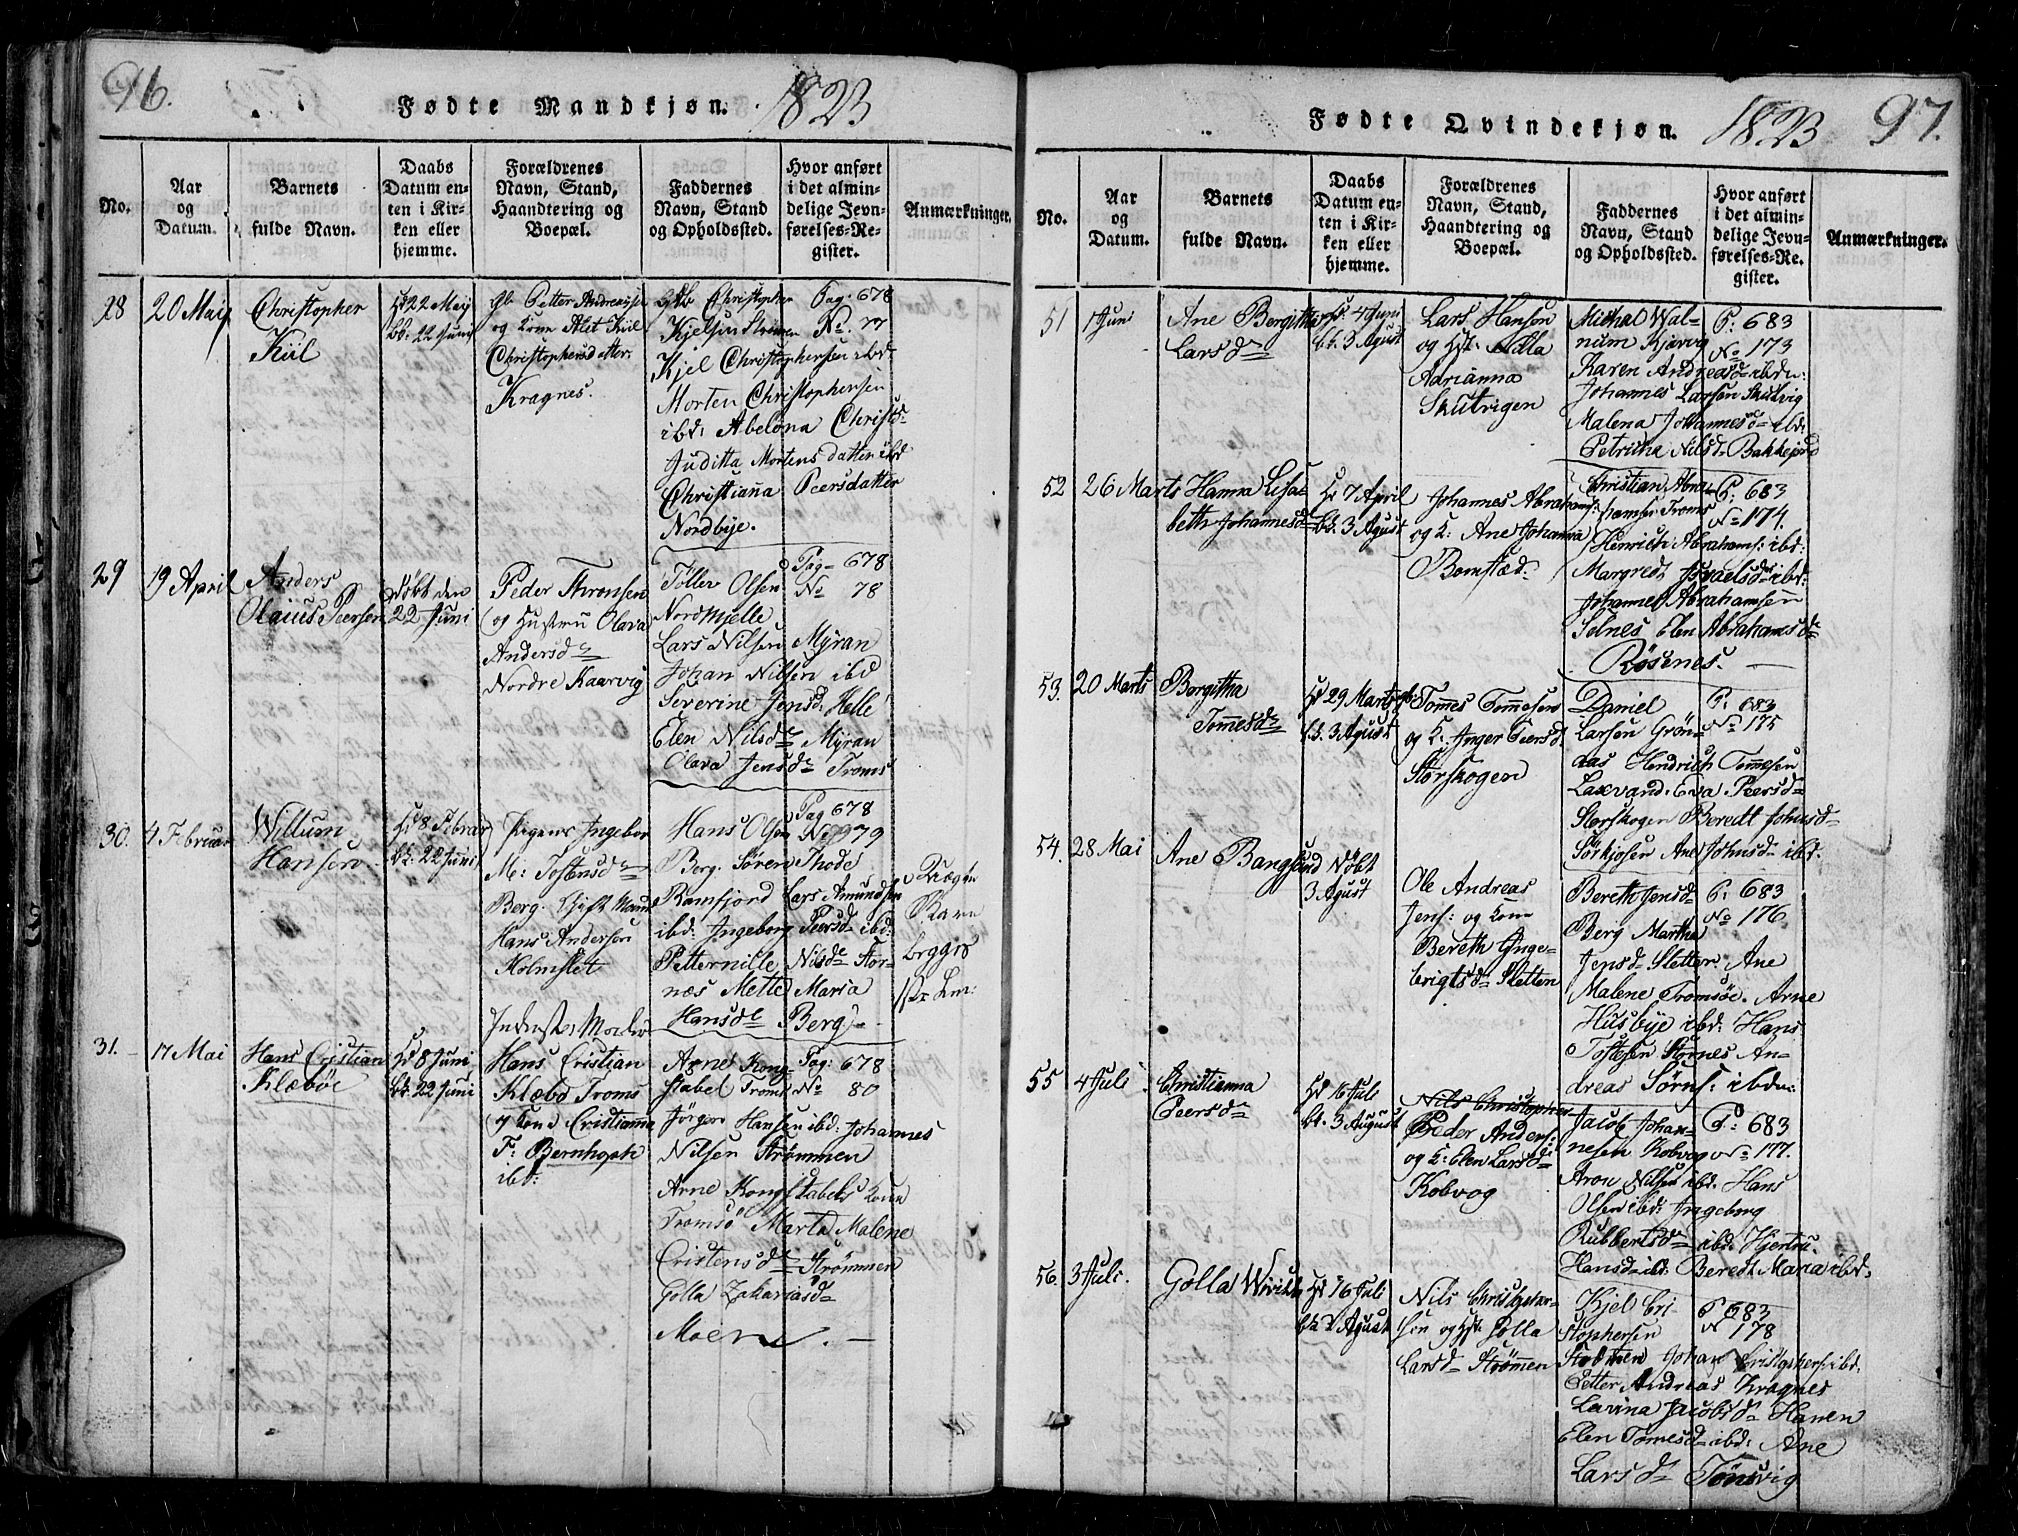 96.
Fødte Mandkjøn. 1823
No.
Aar
og
Datum.
Barnets
fulde Navn.
Daabs
Datum en-
ten i Kir-
ken eller
hjemme.
Forældrenes
Navn, Stand,
Haandtering og
Boepæl.
Faddernes
Navn, Stand
og Opholdssted.
Hvor anført
i det almin-
delige Jevn-
førelses-Re-
gister.
Anmærkninger.
28
20 Maij
Christopher
Kiil
Hd 22 Maij
bk: 22 Juni
Petter Andreassen
og Kone Alet Kiil
Christophersdatter
Kragnes.
Christopher
Kjelsen Strømen
Kjel Christophersen ibd:
Morten Christophersen
ibd: Abelona Christsd
Juditta Mortensdatter ibd
Christianna Peersdatter
Nordbye.
Pag: 678
No. 77
29
19 April
Anders
Olaius Peersen
Døbt den
22 Juni
Peder Thronsen
og Hustru Olava
Andersdr
Nordre Kaarvig
Töller Olsen
Nordhjelle
Lars Nilsen Myran
Johan Nilsen ibd
Severine Jensd: Helle
Elen Nilsdr Myran
Olava Jensdr Troms
Pag- 678
No 78
30.
4 Februar
Willum
Hansen
Hd 8 Februar
bk. 22 Juni
Pigens Ingebor
M: Tostensdr
Berg.
Hans Andersen
Holmslet
Hans Olsen
Berg. Søren Thode
Ramfjord Lars Amundsen
ibd: Ingeborg Peersd- ibd:
Petternille Nilsdr Stor-
næs Mette Maria
Hansdr Berg
Pag 678
No 79
31.
17 Mai
Hans Cristian
Klæbøe
Hd 8 Juni
bk. 22 Juni
Hans Cristian
Klæbo Troms
og Kone Cristianna
F: Bernhoph
ibd:
Arne Kong-
stabel Troms
Jørgen Hansen ibd: Johannes
Nilsen Strømmen
Arne Kongstabels Kone
Tromsø Marta Malene
Cristensdr Strømmen
Golla Zakariasdr
Moen.
Pag: 678
No 80
97.
Fødte Qvindekjøn. 1823
No.
Aar
og
Datum.
Barnets
fulde Navn.
Daabs
Datum en-
ten i Kir-
ken eller
hjemme.
Forældrenes
Navn, Stand,
Haandtering og
Boepæl.
Faddernes
Navn, Stand
og Opholdssted.
Hvor anført
i det almin-
delige Jevn-
førelses-Re-
gister.
Anmærkninger.
51
1 Juni
Ane Bergitha
Larsdr
Hd. 4 Juni
bk. 3 Agust
Lars Hanson
og Hst: Nilla
Adrianna
Skutvigen
Michal Wal-
num Kjørvig
Karen Andreasd- ibdn:
Johannes Larsen Skutvig
Malena Johannesd- ibd:
Petricha Nilsd. Bakkejord
P: 683
No 173
52
26 Marts
Hanna Lisa-
beth Johannesdr
Hd 7 April
bk. 3 Agust
Johannes Abrahams:
og K: Ane Johanna
Bomstæd.
Christian Abra-
hamsen Troms
Henrich Abrahams: ibd:
Margredt Israelsdr ibd:
Johannes Abrahamsen
Selnes Elen Abrahamsdr
Røsenes.
P: 683
No 174.
53.
20 Marts
Bergitha
Tomesdr
Hd 29 Marts
bk. 3 Agust
Tomes Tommesen
og K. Inger Peersd.
Storskogen
Daniel
Larsen Grön-
aas Hendrich Tommesen
Laxvand. Eva Peersd-
Storskogen Beredt Johnsd-
Sørkjosen Ane Johnsd- ibd:
P: 683
No 175
54.
28 Mai
Ane Bangsund
Døbt
3 Agust
Ole Andreas
Jens: og Kone
Bereth Inge-
brigtsdr Sletten
Bereth Jensd-
Berg Martha
Jensd- Sletten. Ane
Malene Tromsöe. Arne
Husbye ibd: Hans
Tostesen Stornes An-
dreas Sörns: ibdn:
P: 683
No 176
55
4 Juli
Christianna
Peersdr
Hd 16 Juli
bk. 3 August
Nils Christopher
Peder Anders:
og K: Elen Larsd-
Kobvog
Jacob Johan-
nesen Kobvog
Aron Nilsen ibd. Hans
Olsen ibd: Ingeborg
Rubbertsdr ibd: Hjertru
Hansd- ibd: Beredt Maria ibd:
P: 683
No 177.
56.
3 Juli.
Golla
Hd 16 Juli
bk 3 Agust
Nils Christopher-
sen og Hst: Golla
Larsdr Strømen
Kjel Cri-
stophersen
Strömen Johan Cristophers: ibd:
Petter Andreas Kragnes
Lavina Jacobsdr Hanen
Elen Tomesd- ibd: Ane
Larsdr Tønsvig
P 683
No 178